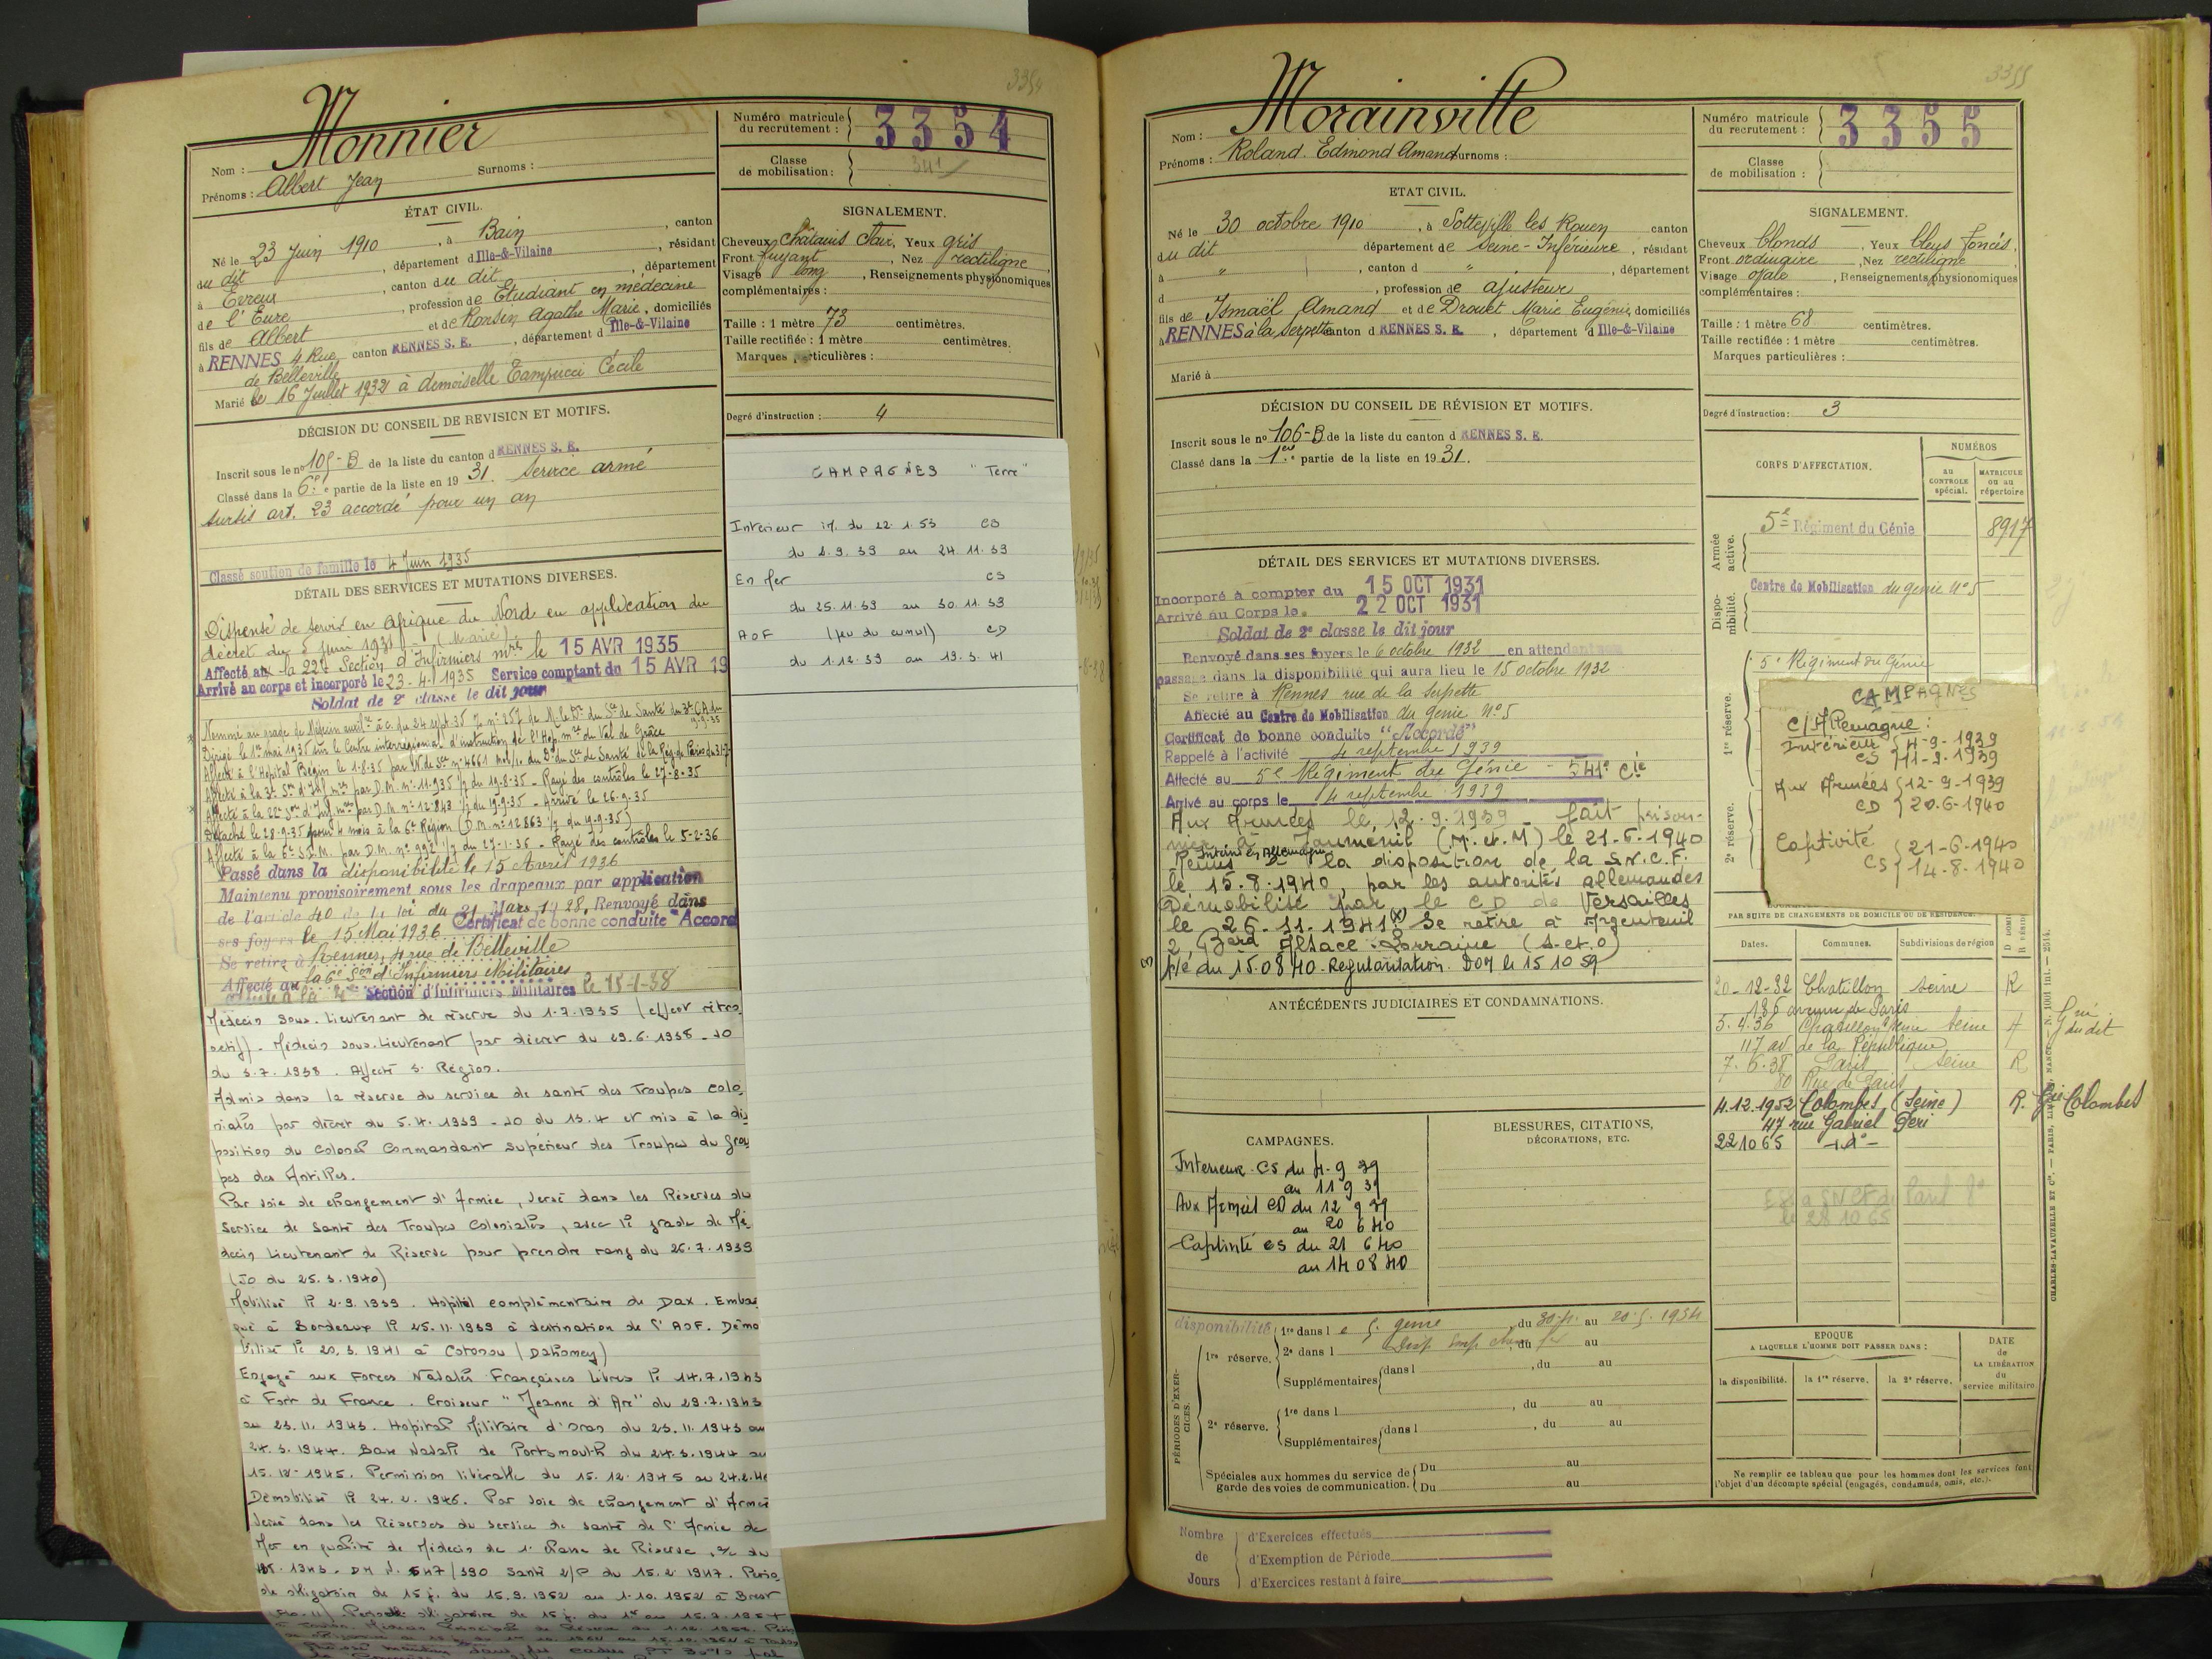 3354
Monnier
Nom :
Prénoms : Albert Jean Surnoms :
Numéro matricule
du recrutement : 3354
Classe
de mobilisation :
ÉTAT CIVIL.
Né le 23 Juin 1910, à Bain, canton
du dit, département d Ille-&-Vilaine, résidant
à Evreux, canton du dit, département
de l'Eure, profession de Etudiant en médecine
fils de Albert et de Agathe Marie, domiciliés
à RENNES 4 Rue canton RENNES S. E., département d Ille-&-Vilaine
de Belleville
Marié le 16 Juillet 1932 à demoiselle Tampucci Cécile
SIGNALEMENT.
Cheveux châtains clair, Yeux gris
Front fuyant, Nez rectiligne
Visage long, Renseignements physionomiques
complémentaires :
Taille : 1 mètre 73 centimètres.
Taille rectifiée : 1 mètre centimètres.
Marques particulières :
Degré d'instruction : 4
DÉCISION DU CONSEIL DE RÉVISION ET MOTIFS.
Inscrit sous le n° 105-B de la liste du canton d RENNES S. E.
Classé dans la 6e partie de la liste en 1931. Service armé
sursis art. 23 accordé pour un an
Classé soutien de famille le 4 Juin 1935
DÉTAIL DES SERVICES ET MUTATIONS DIVERSES.
Dispensé de servir en Afrique du Nord en application du
décret du 5 juin 1931 - (Marié)
Affecté à la 22e Section d'Infirmiers mres le 15 AVR 1935
Arrivé au corps et incorporé le 23-4-1935 Service comptant du 15 AVR 19
Soldat de 2e classe le dit jour
Nommé au grade de Médecin auxil. à c. du 24 sept. 35
Dirigé le 1er mai 1935 sur le Centre interrégional d'instruction de l'Hop. mre du Val de Grâce
Affecté à l'Hôpital Bégin le 1-8-35
Affecté à la 3e Son d'Inf. mres par D.M. n° 11.935 1/7 du 19-8-35 - Rayé des contrôles le 27-8-35
Affecté à la 22e Son d'Inf. mres par D.M. n° 12.843 1/7 du 19-9-35 - Arrivé le 26-9-35
Détaché le 28-9-35 pour 4 mois à la 6e Région (D.M. n° 12863 1/7 du 19-9-35)
Affecté à la 6e S.I.M. par D.M. n° 992 1/7 du 27-1-36 - Rayé des contrôles le 5-2-36
Passé dans la disponibilité le 15 Avril 1936
Maintenu provisoirement sous les drapeaux par application
de l'article 40 de la loi du 31 Mars 1928, Renvoyé dans
ses foyers le 15 Mai 1936 Certificat de bonne conduite "Accord
Se retire à Rennes, 4 rue de Belleville
Affecté à la 6e Son d'Infirmiers Militaires
Section d'Infirmiers Militaires le 15-1-38
Médecin Sous-Lieutenant de réserve du 1.7.1935 (effet rétro
actif) - Médecin sous-Lieutenant par décret du 29.6.1938 - JO
du 3.7.1938. Affecté 3e Région.
Admis dans la réserve du service de santé des Troupes Colo
niales par décret du 5.4.1939 - JO du 13.4 et mis à la dis
position du Colonel Commandant Supérieur des Troupes du Grou
pes des Antilles.
Par voie de changement d'Armée, versé dans les Réserves du
Service de Santé des Troupes Coloniales, avec le grade de Mé
decin Lieutenant de Réserve pour prendre rang du 26.7.1939
(JO du 25.3.1940)
Mobilisé le 2.9.1939. Hôpital complémentaire de Dax. Embar
qué à Bordeaux le 25.11.1939 à destination de l'AOF. Démo
bilisé le 20.3.1941 à Cotonou (Dahomey)
Engagé aux Forces Navales Françaises Libres le 14.7.1943
à Fort de France. Croiseur "Jeanne d'Arc" du 29.7.1943
au 23.11.1943. Hôpital Militaire d'Oran du 23.11.1943 au
24.3.1944. Base Navale de Portsmouth du 24.3.1944 au
15.12.1945. Permission libérable du 15.12.1945 au 24.2.46
Démobilisé le 24.2.1946. Par voie de changement d'Armée
versé dans les Réserves du service de santé de l'Armée de
Mer en qualité de Médecin de 1e Classe de Réserve
du 15.2.1947. Pério
de obligatoire de 15 j. du 15.9.1952 au 1.10.1952 à Brest
Période obligatoire de 15 j. du 1er au 15.9.1954
CAMPAGNES "Terre"
Intérieur CS
du 2.9.39 au 24.11.39
En Mer CS
du 25.11.39 au 30.11.39
AOF CD
du 1.12.39 au 19.3.41
3355
Nom : Morainville
Prénoms : Roland Edmond Amand Surnoms :
Numéro matricule
du recrutement : 3355
Classe
de mobilisation :
ETAT CIVIL.
Né le 30 octobre 1910, à Sotteville les Rouen canton
du dit département de Seine-Inférieure, résidant
à ", canton d ", département
d, profession de ajusteur
fils de Ismaël Amand et de Drouet Marie Eugénie, domiciliés
à RENNES à la Serpette canton d RENNES S. E., département d Ille-&-Vilaine
Marié à
SIGNALEMENT.
Cheveux blonds, Yeux bleus foncés.
Front ordinaire, Nez rectiligne
Visage ovale, Renseignements physionomiques
complémentaires :
Taille : 1 mètre 68 centimètres.
Taille rectifiée : 1 mètre centimètres.
Marques particulières :
Degré d'instruction : 3
DÉCISION DU CONSEIL DE RÉVISION ET MOTIFS.
Inscrit sous le n° 106-B de la liste du canton d RENNES S. E.
Classé dans la 1ere partie de la liste en 1931.
DÉTAIL DES SERVICES ET MUTATIONS DIVERSES.
Incorporé à compter du 15 OCT 1931
Arrivé au Corps le 22 OCT 1931
Soldat de 2e classe le dit jour
Renvoyé dans ses foyers le 6 octobre 1932 en attendant son
passage dans la disponibilité qui aura lieu le 15 octobre 1932
Se retire à Rennes rue de la Serpette
Affecté au Centre de Mobilisation du Génie N° 5
Certificat de bonne conduite "Accordé"
Rappelé à l'activité 4 septembre 1939
Affecté au 5e Régiment du Génie - 541e Cie
Arrivé au corps le 4 septembre 1939
Aux Armées le 12.9.1939 - fait prison-
nier à Jauménil (M. et M) le 21-6-1940
Interné en Allemagne
Remis à la disposition de la S.N.C.F.
le 15.8.1940, par les autorités allemandes
Démobilisé par le CD de Versailles
le 26-11-1941 (x) Se retire à Argenteuil
2, Bard Alsace Lorraine (S.et.O)
plé du 15.08.40. Régularisation. DOM le 15 10 59
ANTÉCÉDENTS JUDICIAIRES ET CONDAMNATIONS.
CAMPAGNES.
Intérieur CS du 4-9 39
au 11 9 39
Aux Armées CD du 12 9 39
au 20 6 40
Captivité CS du 21 6 40
au 14 08 40
BLESSURES, CITATIONS,
DÉCORATIONS, ETC.
PÉRIODES D'EXERCICES.
disponibilité
1re réserve.
1re dans le 5. génie, du 30-4. au 20.5.1934
2e dans l, du au
Supplémentaires dans l, du au
2e réserve.
1re dans l, du au
Supplémentaires dans l, du au
Spéciales aux hommes du service de garde des voies de communication.
Du au
Du au
Nombre de Jours
d'Exercices effectués
d'Exemption de Période
d'Exercices restant à faire
CORPS D'AFFECTATION.
NUMÉROS
au CONTROLE spécial.
MATRICULE ou au répertoire
Armée active.
5e Régiment du Génie 8917
Disponibilité.
Centre de Mobilisation du génie N° 5
1re réserve.
5e Régiment du Génie
2e réserve.
CAMPAGNES
C/Allemagne :
Intérieur CS 4-9-1939
11-9-1939
Aux Armées CD 12-9-1939
20.6-1940
Captivité CS 21-6-1940
14.8.1940
PAR SUITE DE CHANGEMENTS DE DOMICILE OU DE RÉSIDENCE.
Dates. Communes. Subdivisions de région
20-12-32 Chatillon Seine R
186 avenue de Paris
5.4.36 Chatillon Seine
117 av. de la République
7.6.38 Paris Seine R
80 Rue de Paris
4.12.1952 Colombes (Seine) R. Gie Colombes
47 rue Gabriel Péri
22 10 65 - d° -
le 28 10 65
EPOQUE
A LAQUELLE L'HOMME DOIT PASSER DANS :
la disponibilité. la 1re réserve. la 2e réserve.
DATE
de
LA LIBÉRATION
du
service militaire
Ne remplir ce tableau que pour les hommes dont les services font
l'objet d'un décompte spécial (engagés, condamnés, omis, etc.).
CHARLES-LAVAUZELLE ET Cie. — PARIS, LIMOGES, NANCY